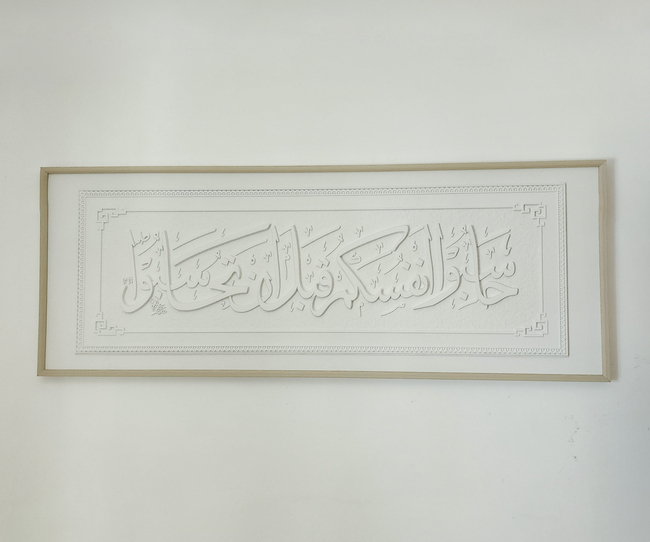 حاسبوا انفسكم قبل ان تحاسبوا